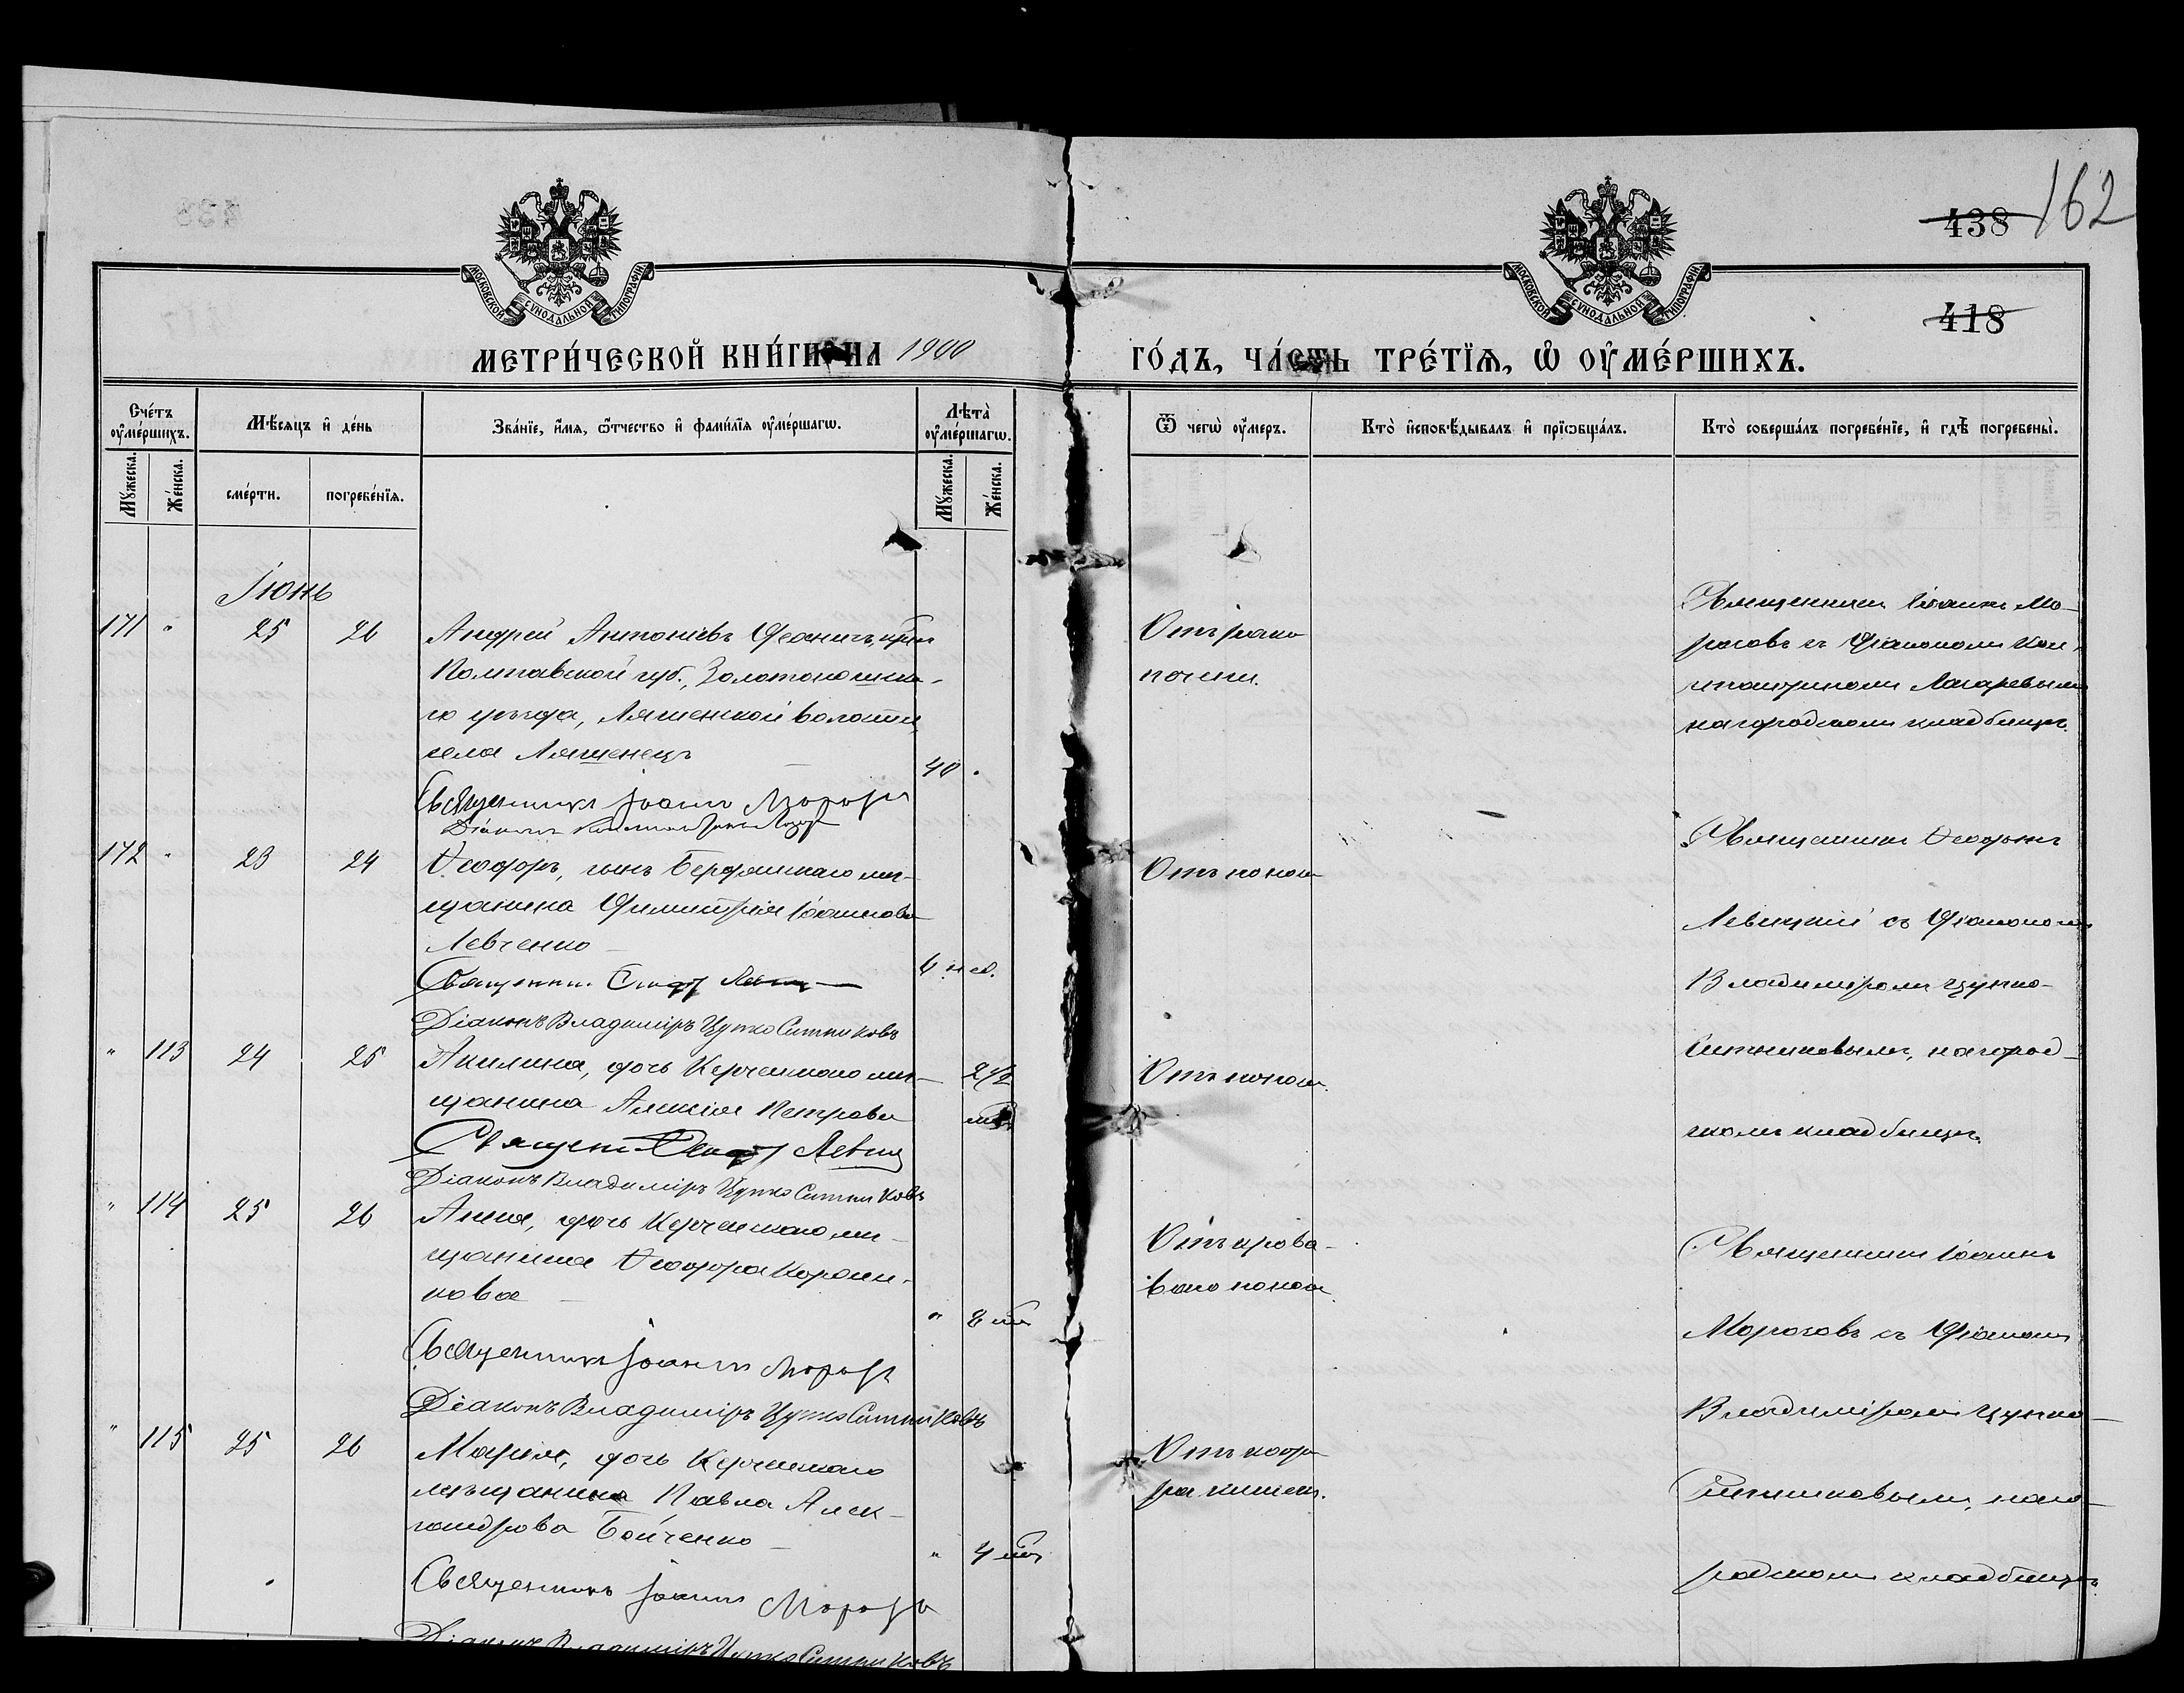 438 162
418
МОСКОВСКОЙ СѴНОДАЛЬНОЙ ТИПОГРАФІИ
МОСКОВСКОЙ СѴНОДАЛЬНОЙ ТИПОГРАФІИ
МЕТРИ́ЧЕСКОЙ КНИ́ГИ НА 1900 ГО́ДЪ, ЧА́СТЬ ТРЕ́ТІѦ, Ѡ҆ ОУ҆МЕ́РШИХЪ.
Счетъ оумершихъ.
Мужеска.
Женска.
Мѣсяцъ и день
смерти.
погребенїя.
Званїе, имя, отчество и фамилїя оумершагѡ.
Лѣта оумершагѡ.
Мужеска.
Женска.
Ѿ чегѡ оумеръ.
Кто исповѣдывалъ и прїѡбщалъ.
Кто совершалъ погребенїе, и гдѣ погребены.
Іюнь
171 " 25 26
Андрей Антоніевъ
Полтавской губ., Золотоношска-
го уѣзда, Ляшенской волости,
села Ляшенецъ
40 "
Отъ рака
печени.
Священникъ Іоаннъ Мо-
розовъ съ Діакономъ Кон-
стантиномъ Лазаревымъ
на городскомъ кладбищѣ.
Священникъ Іоаннъ Морозовъ
Діаконъ
172 " 23 24
Ѳеодоръ, сынъ Бердянскаго мѣ-
щанина Димитрія Іоаннова
Левченко
6 нед.
Отъ понос
Священникъ
Левицкій съ Діакономъ
Владиміромъ Цупко-
Ситниковымъ, на город-
скомъ кладбищѣ.
Священник.
Діаконъ Владиміръ Цупко Ситниковъ
" 113 24 25
Акилина, дочь Керченскаго мѣ-
щанина Алексія Петрова
2 1/2
Отъ понос.
Священ
Діаконъ Владиміръ Цупко Ситниковъ
" 114 25 26
Анна, дочь Керченскаго мѣ-
щанина Ѳеодора
нова
" 8 мѣс
Отъ крова-
ваго поноса.
Священникъ Іоаннъ
Морозовъ съ Діаконом
Владиміромъ Цупко-
Ситниковымъ, на го-
родскомъ кладбищѣ.
Священникъ Іоаннъ Морозовъ
Діаконъ Владиміръ Цупко Ситниковъ
" 115 25 26
Марія, дочь Керченскаго
мѣщанина Павла Алек-
сандрова Бойченко
" 4 мѣс
Отъ катар-
ра кишекъ.
Священникъ Іоаннъ Морозовъ
Діаконъ Владиміръ Цупко Ситниковъ